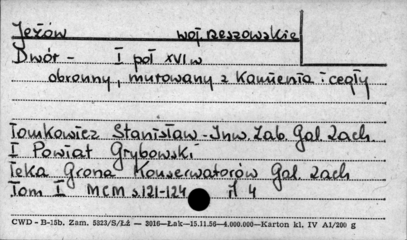 Jeżów woj. Rzeszowskie
Dwór - I poł XVI.w
obronny, murowany z kamienia i cegły
Tomkowicz Stanisław - Inw. Zab. Gal. Zach.
I Powiat Grybowski
Teka Grona Konserwatorów Gal. Zach
Tom I MCM s.121-124 il 4
CWD - B-15b. Zam. 5823/S/ŁŻ — 3016—Łak—15.11.56—4.000.000—Karton kl. IV A1/200 g